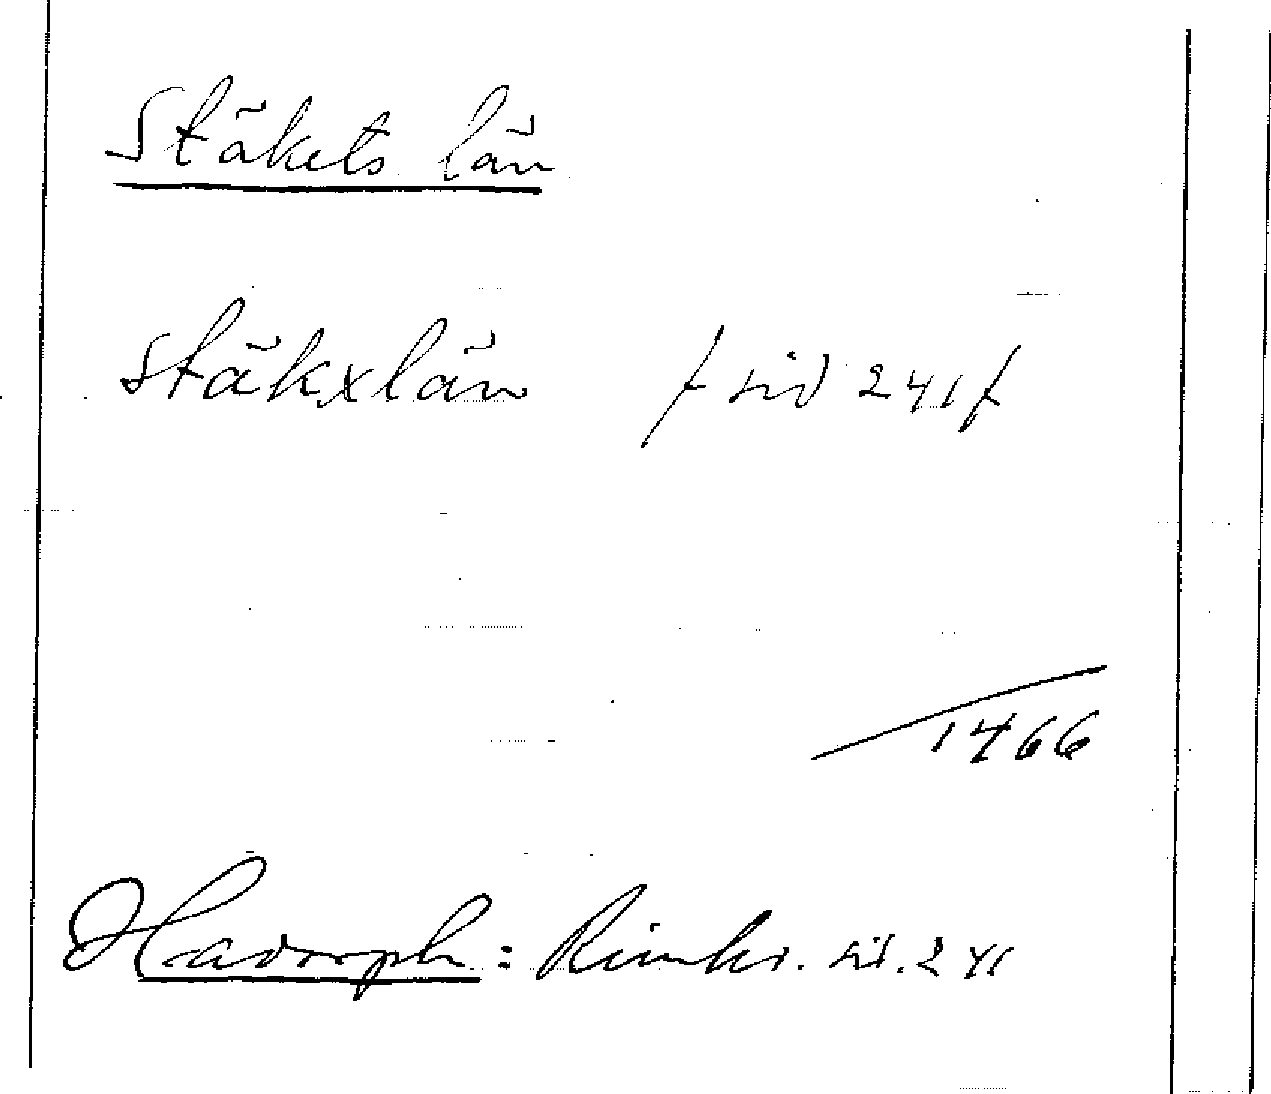 Stäkets län
Stäkxlän / sid 241 /
1466
Hadorph: Rimkr. sid. 241